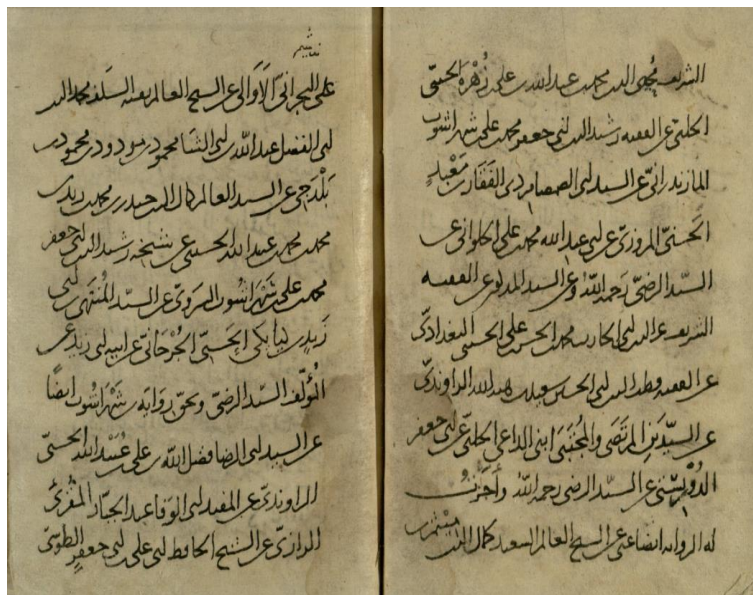 الشريف محيي الدين محمد بن عبد الله بن علي بن زهرة الحسيني
الحلبي عن الفقيه رشيد الدين أبي جعفر محمد بن علي بن شهرآشوب
المازندراني عن السيد أبي الصمصام ذي الفقار بن معبد
الحسني المروزي عن أبي عبد الله محمد بن علي الحلواني عن
السيد الرضي رحمه الله وعن السيد المذكور عن الفقيه
الشريف عز الدين أبي الحارث محمد بن الحسن بن علي الحسيني البغدادي
عن الفقيه قطب الدين أبي الحسين سعيد بن هبة الله الراوندي
عن السيدين المرتضى والمجتبى ابني الداعي الحلبي عن أبي جعفر
الدوريستي عن السيد الرضي رحمه الله وأجزت
له الرواية أيضا عني عن الشيخ العالم السعيد كمال الدين ميثم بن
علي البحراني الأوالي عن الشيخ العالم بقية السلف مجد الدين
أبي الفضل عبد الله بن أبي الثنا محمود بن مودود بن محمود بن
بلدجي عن السيد العالم كمال الدين حيدر بن محمد بن زيد بن
محمد بن محمد بن عبد الله الحسيني عن شيخه رشيد الدين أبي جعفر
محمد بن علي بن شهرآشوب السروي عن السيد المنتهى بن أبي
زيد بن كيابكي الحسيني الجرجاني عن أبيه أبي زيد عن
المؤلف السيد الرضي وبحق رواية شهرآشوب أيضا
عن السيد أبي الرضا فضل الله بن علي بن عبيد الله الحسني
الراوندي عن المفيد أبي الوفا عبد الجبار المقرئ
الرازي عن الشيخ الحافظ أبي علي بن أبي جعفر الطوسي